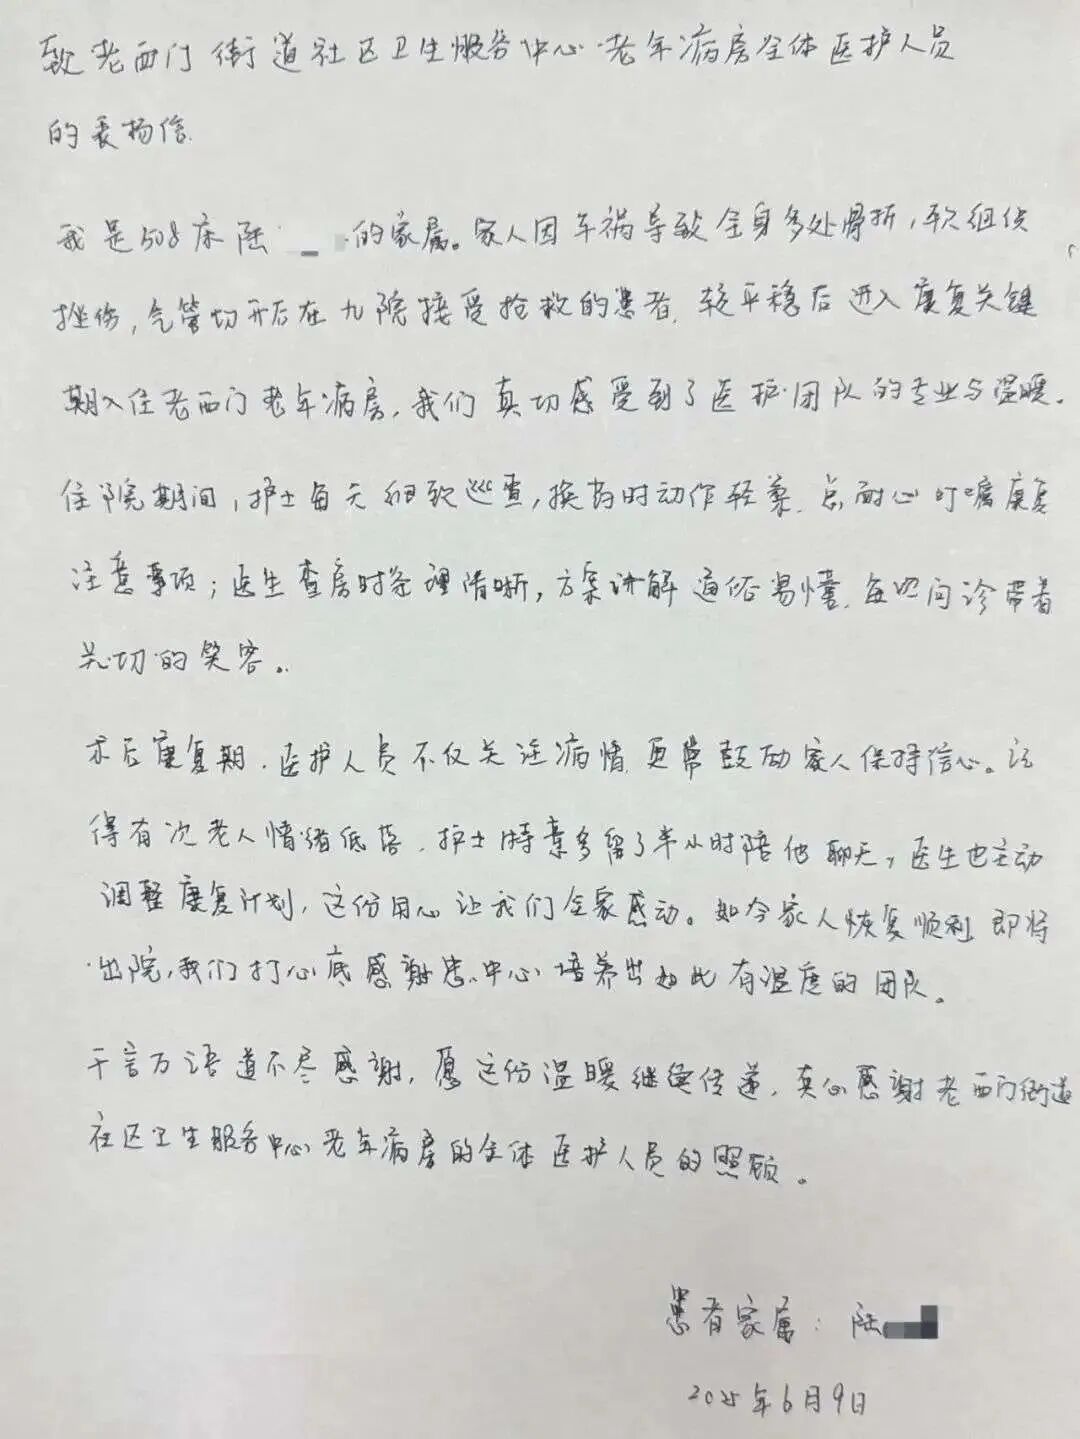 致老西门街道社区卫生服务中心老年病房全体医护人员
的表扬信
我是508床陆 的家属。家人因车祸导致全身多处骨折，软组织
挫伤，气管切开后在九院接受抢救的患者，较平稳后进入康复关键
期入住老西门老年病房，我们真切感受到了医护团队的专业与温暖。
住院期间，护士每天细致巡查，换药时动作轻柔，总耐心叮嘱康复
注意事项；医生查房时条理清晰，方案讲解通俗易懂，每次问诊带着
关切的笑容。
术后康复期，医护人员不仅关注病情，更常鼓励家人保持信心。记
得有次老人情绪低落，护士特意多留了半小时陪他聊天，医生也主动
调整康复计划，这份用心让我们全家感动。如今家人恢复顺利，即将
出院，我们打心底感谢贵中心培养出如此有温度的团队。
千言万语道不尽感谢，愿这份温暖继续传递，真心感谢老西门街道
社区卫生服务中心老年病房的全体医护人员的照顾。
患者家属：陆
2025年6月9日